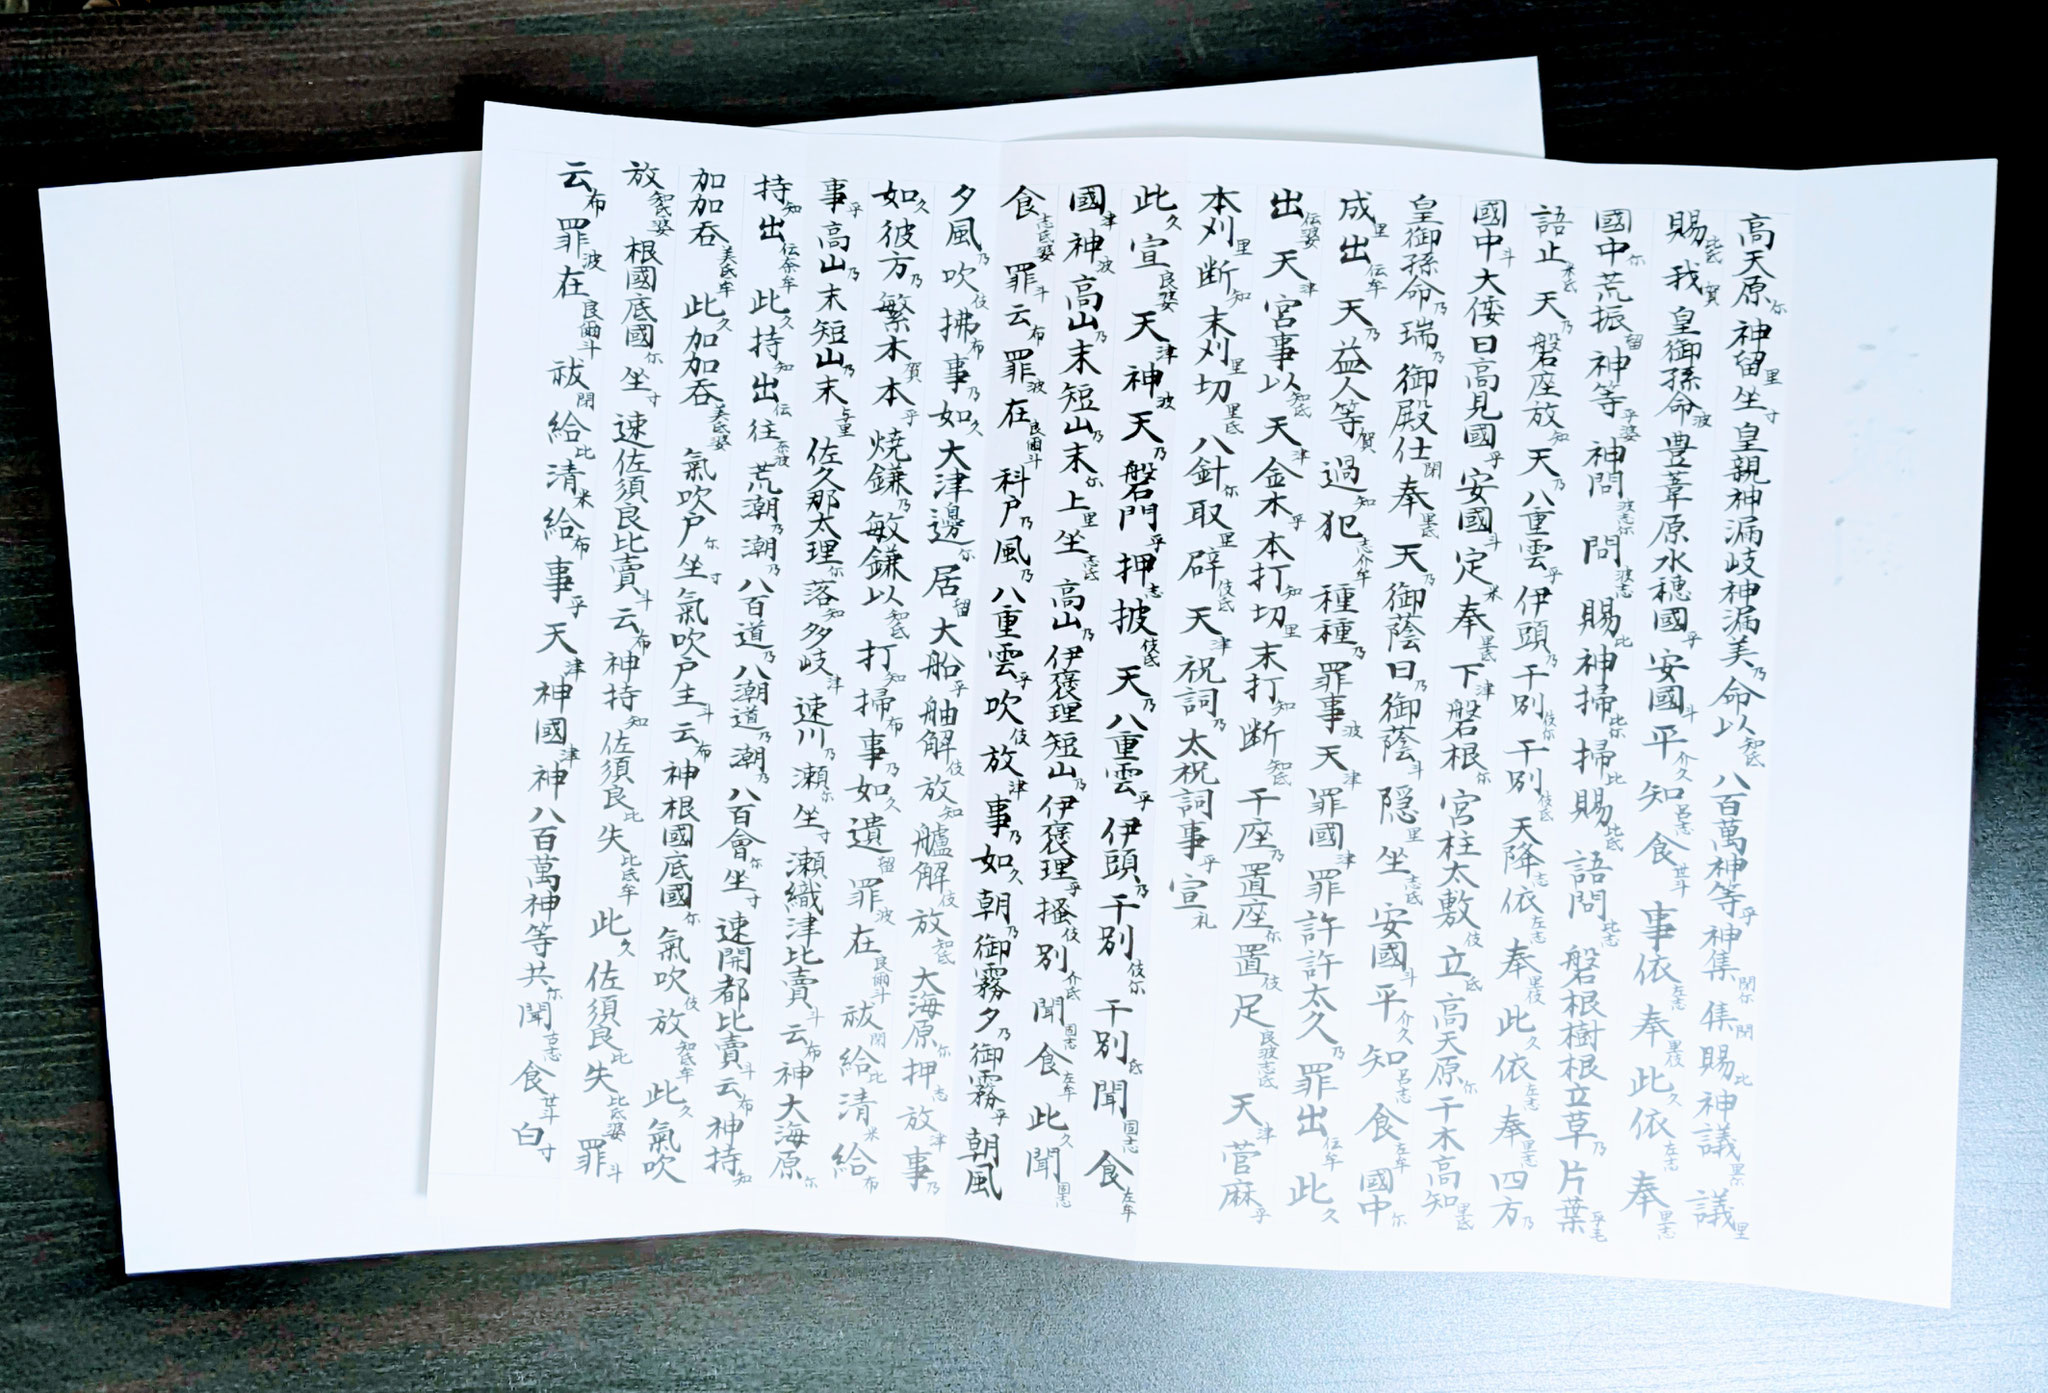 高天原尓神留里坐寸皇親神漏岐神漏美乃命以知氐八百萬神等乎神集閇尓集閇賜比神議里尓議里
賜比氐我賀皇御孫命波豊葦原水穗國乎安國斗平介久知呂志食世斗事依左志奉里伎此久依左志奉里志
國中尓荒振留神等乎婆神問波志尓問波志賜比神掃比尓掃比賜比氐語問比志磐根樹根立草乃片葉乎毛
語止米氐天乃磐座放知天乃八重雲乎伊頭乃千別伎尓千別伎氐天降志依左志奉里伎此久依左志奉里志四方乃
國中斗大倭日高見國乎安國斗定米奉里氐下津磐根尓宮柱太敷伎立氐高天原尓千木高知里氐
皇御孫命乃瑞乃御殿仕閇奉里氐天乃御蔭日乃御蔭斗隠里坐志氐安國斗平介久知呂志食左牟國中尓
成里出伝牟天乃益人等賀過知犯志介牟種種乃罪事波天津罪國津罪許許太久乃罪出伝牟此久
出伝婆天津宮事以知氐天津金木乎本打知切里末打知断知氐千座乃置座尓置伎足良波志氐天津菅麻乎
本刈里断知末刈里切里氐八針尓取里辟伎氐天津祝詞乃太祝詞事乎宣礼
此久宣良婆天津神波天乃磐門乎押志披伎氐天乃八重雲乎伊頭乃千別伎尓千別氐聞固志食左牟
國津神波高山乃末短山乃末尓上里坐志氐高山乃伊褒理短山乃伊褒理乎掻伎別介氐聞固志食左牟此久聞固志
食志氐婆罪斗云布罪波在良爾斗科戸乃風乃八重雲乎吹伎放津事乃如久朝乃御霧夕乃御霧乎朝風
夕風乃吹伎拂布事乃如久大津邊尓居留大船乎舳解伎放知艫解伎放知氐大海原尓押志放津事乃
如久彼方乃繁木賀本乎焼鎌乃敏鎌以知氐打知掃布事乃如久遺留罪波在良爾斗祓閇給比清米給布
事乎高山乃末短山乃末与里佐久那太理尓落知多岐津速川乃瀬尓坐寸瀬織津比賣斗云布神大海原尓
持知出伝奈牟此久持知出伝往奈波荒潮乃潮乃八百道乃八潮道乃潮乃八百會尓坐寸速開都比賣斗云布神持知
加加吞美氐牟此久加加吞美氐婆氣吹戸尓坐寸氣吹戸主斗云布神根國底國尓氣吹伎放知氐牟此久氣吹
放知氐婆根國底國尓坐寸速佐須良比賣斗云布神持知佐須良比失比氐牟此久佐須良比失比氐婆罪斗
云布罪波在良爾斗祓閇給比清米給布事乎天津神國津神八百萬神等共尓聞古志食世斗白寸